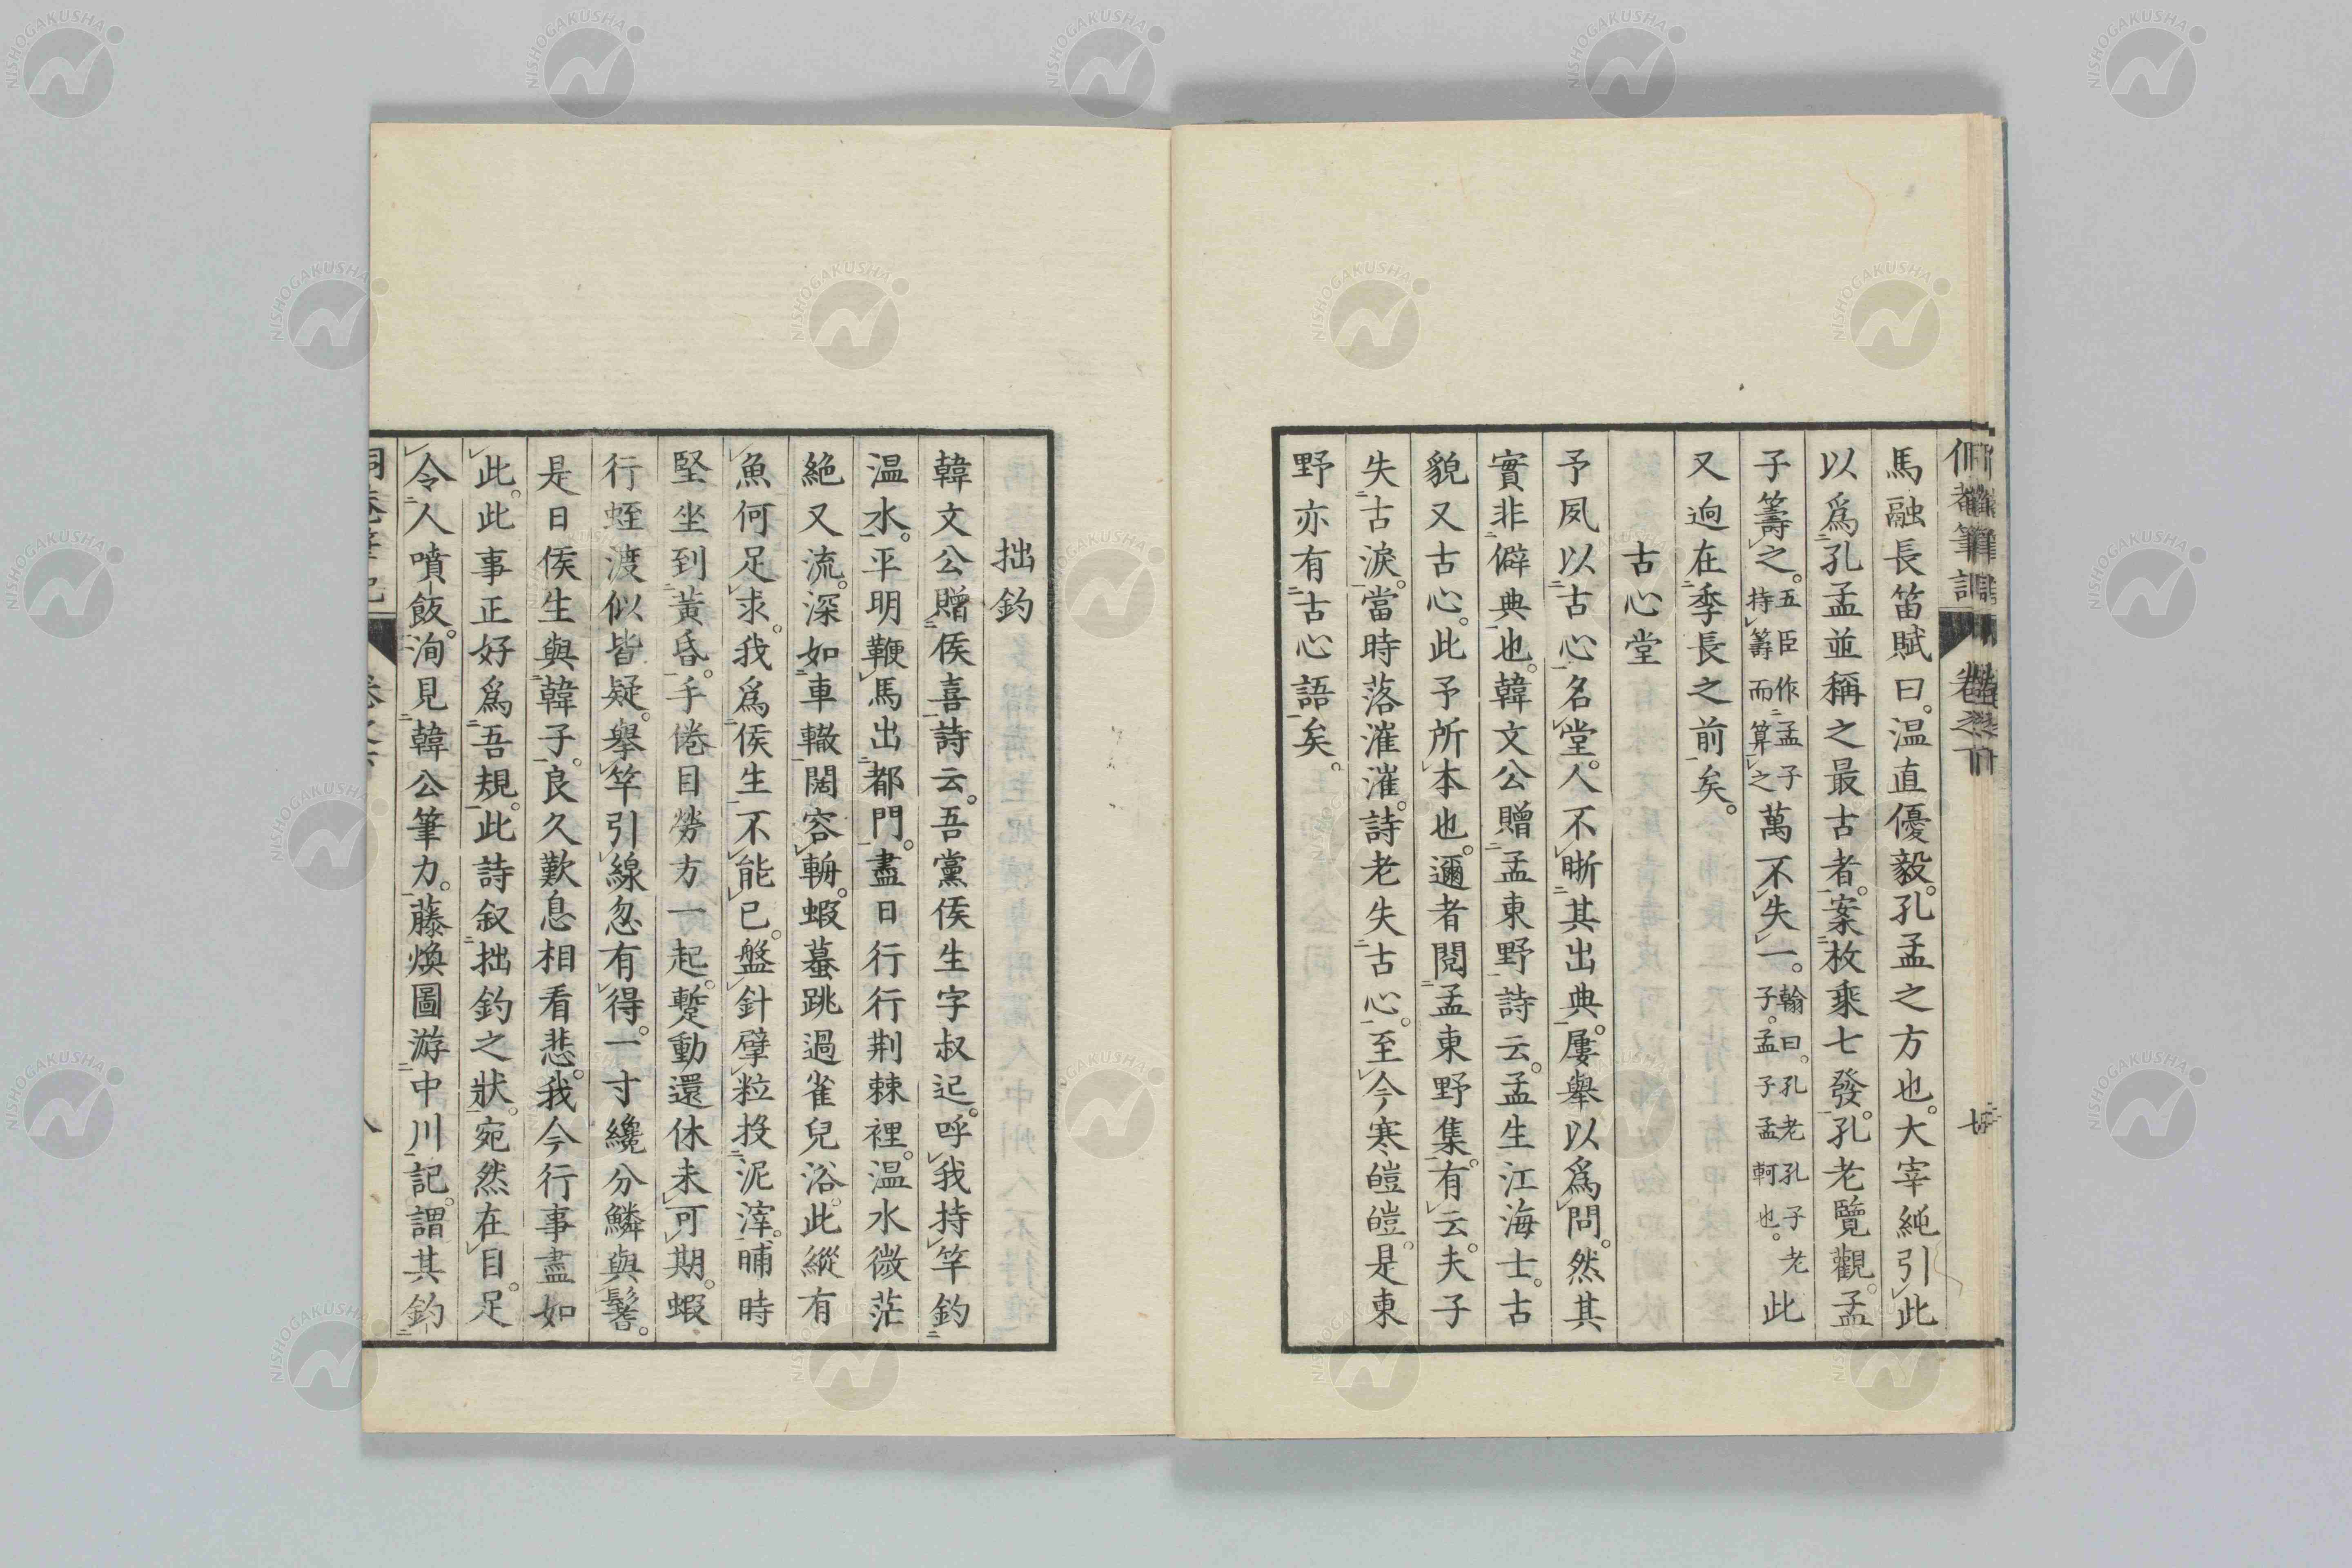 馬融長笛賦曰。温直優毅。孔孟之方也。大宰純引此
以爲孔孟並稱之最古者。案枚乘七發。孔老覽觀。孟
子籌之。五臣作孟子持籌而算之萬不失一。翰曰。孔老孔子老子。孟子孟軻也。此
又逈在季長之前矣。
古心堂
予夙以古心名堂。人不晣其出典。屢舉以爲問。然其
實非僻典也。韓文公贈孟東野詩云。孟生江海士。古
貌又古心。此予所本也。邇者閲孟東野集。有云。夫子
失古淚。當時落漼漼。詩老失古心。至今寒皚皚。是東
野亦有古心語矣。
拙釣
韓文公贈侯喜詩云。吾黨侯生字叔𨑔。呼我持竿釣
温水。平明鞭馬出都門。盡日行行荆棘裡。温水微茫
絶又流。深如車轍闊容輈。蝦蟇跳過雀兒浴。此縱有
魚何足求。我爲侯生不能已。盤針擘粒投泥滓。晡時
堅坐到黄昏。手倦目勞方一起。蹔動還休未可期。蝦
行蛭渡似皆疑。舉竿引線忽有得。一寸纔分鱗與鬐。
是日侯生與韓子。良久歎息相看悲。我今行事盡如
此。此事正好爲吾規。此詩叙拙釣之狀。宛然在目。足
令人噴飯。洵見韓公筆力。藤煥圖游中川記。謂其釣